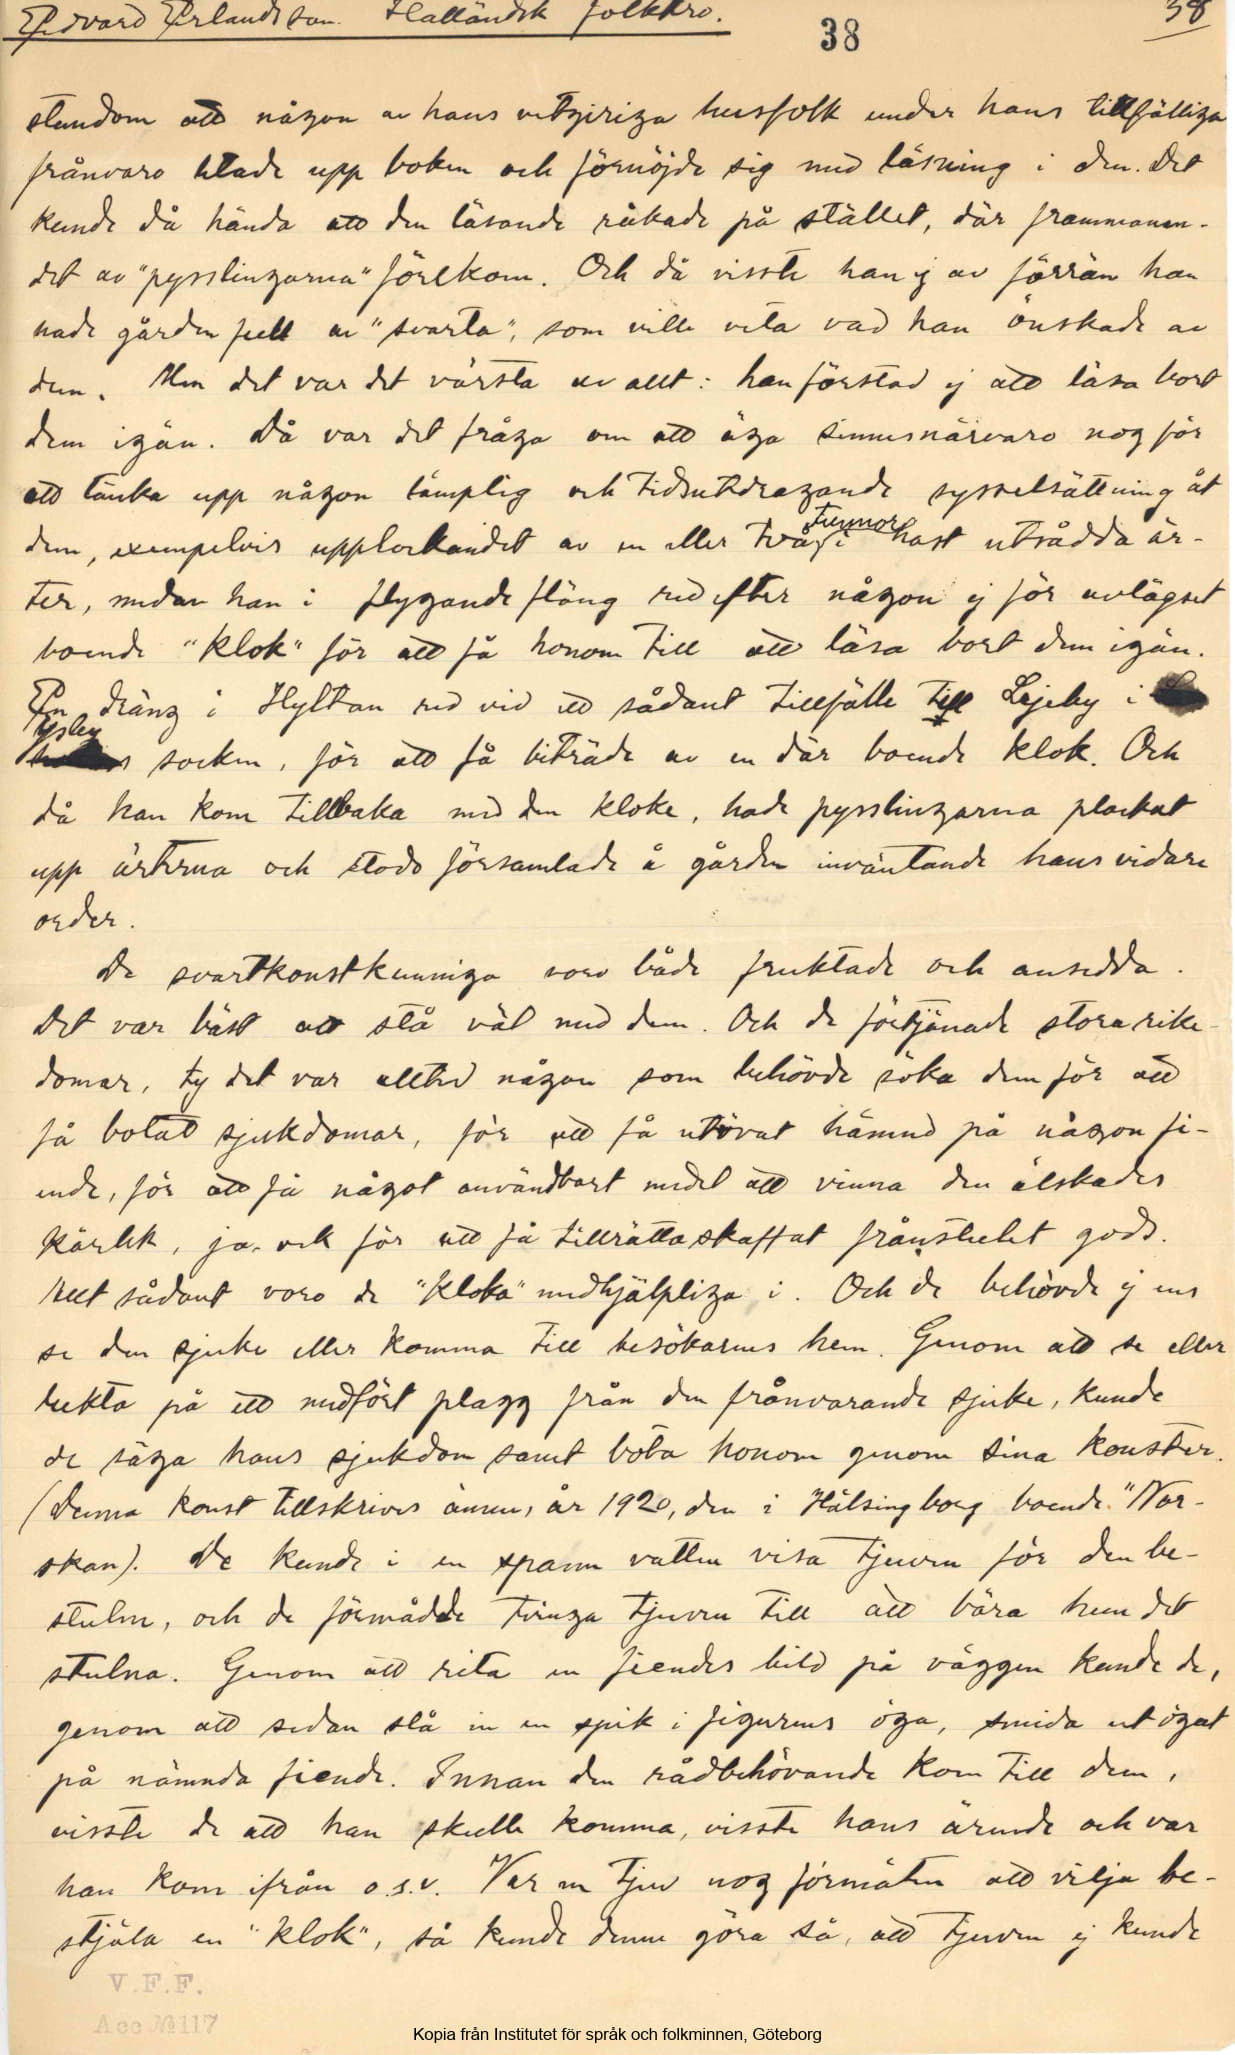 Edvard Erlandsson. Halländsk folktro.
38
38
stundom att någon av hans vetgiriga husfolk under hans tillfälliga
frånvaro letade upp boken och förnöjde sig med läsning i den. Det
kunde då hända att den läsande råkade på stället, där frammanan-
det av "pysslingarna" förekom. Och då visste han ej av förrän han
hade gården full av "svarta", som ville veta vad han önskade av
dem. Men det var det värsta av allt: han förstod ej att läsa bort
dem igän. Då var det fråga om att äga sinnesnärvaro nog för
att tänka upp någon lämplig och tidsutdragande sysselsättning åt
dem, exempelvis upplockandet av en eller två tunnor i hast utsådda är-
ter, medan han i flygande fläng red efter någon ej för avlägset
boende "klok" för att få honom till att läsa bort dem igän.
En dräng i Hyltan red vid ett sådant tillfälle till Lejeby i
socken, för att få biträde av en där boende klok. Och
då han kom tillbaka med den kloke, hade pysslingarna plockat
upp ärterna och stodo församlade å gården inväntande hans vidare
order.
De svartkonstkunniga voro både fruktade och ansedda.
Det var bäst att stå väl med dem. Och de förtjänade stora rike-
domar, ty det var alltid någon som behövde söka dem för att
få botat sjukdomar, för att få utövat hämnd på någon fi-
ende, för att få något användbart medel att vinna den älskades
kärlek, ja, och för att få tillrättaskaffat frånstulet gods.
Allt sådant voro de "kloka" medhjälpliga i. Och de behövde ej ens
se den sjuke eller komma till besökarens hem. Genom att se eller
lukta på ett medfört plagg från den frånvarande sjuke, kunde
de säga hans sjukdom samt bota honom genom sina konster.
(Denna konst tillskrives ännu, år 1920, den i Hälsingborg boende "Nor-
skan). De kunde i en spann vatten visa tjuven för den be-
stulne, och de förmådde tvinga tjuven till att bära hem det
stulna. Genom att rita en fiendes bild på väggen kunde de,
genom att sedan slå in en spik i figurens öga, smida ut ögat
på nämnda fiende. Innan den rådbehövande kom till dem,
visste de att han skulle komma, visste hans ärende och var
han kom ifrån o.s.v. Var en tjuv nog förmäten att vilja be-
stjäla en "klok", så kunde denne göra så, att tjuven ej kunde
V.F.F.
Acc № 117
Kopia från Institutet för språk och folkminnen, Göteborg